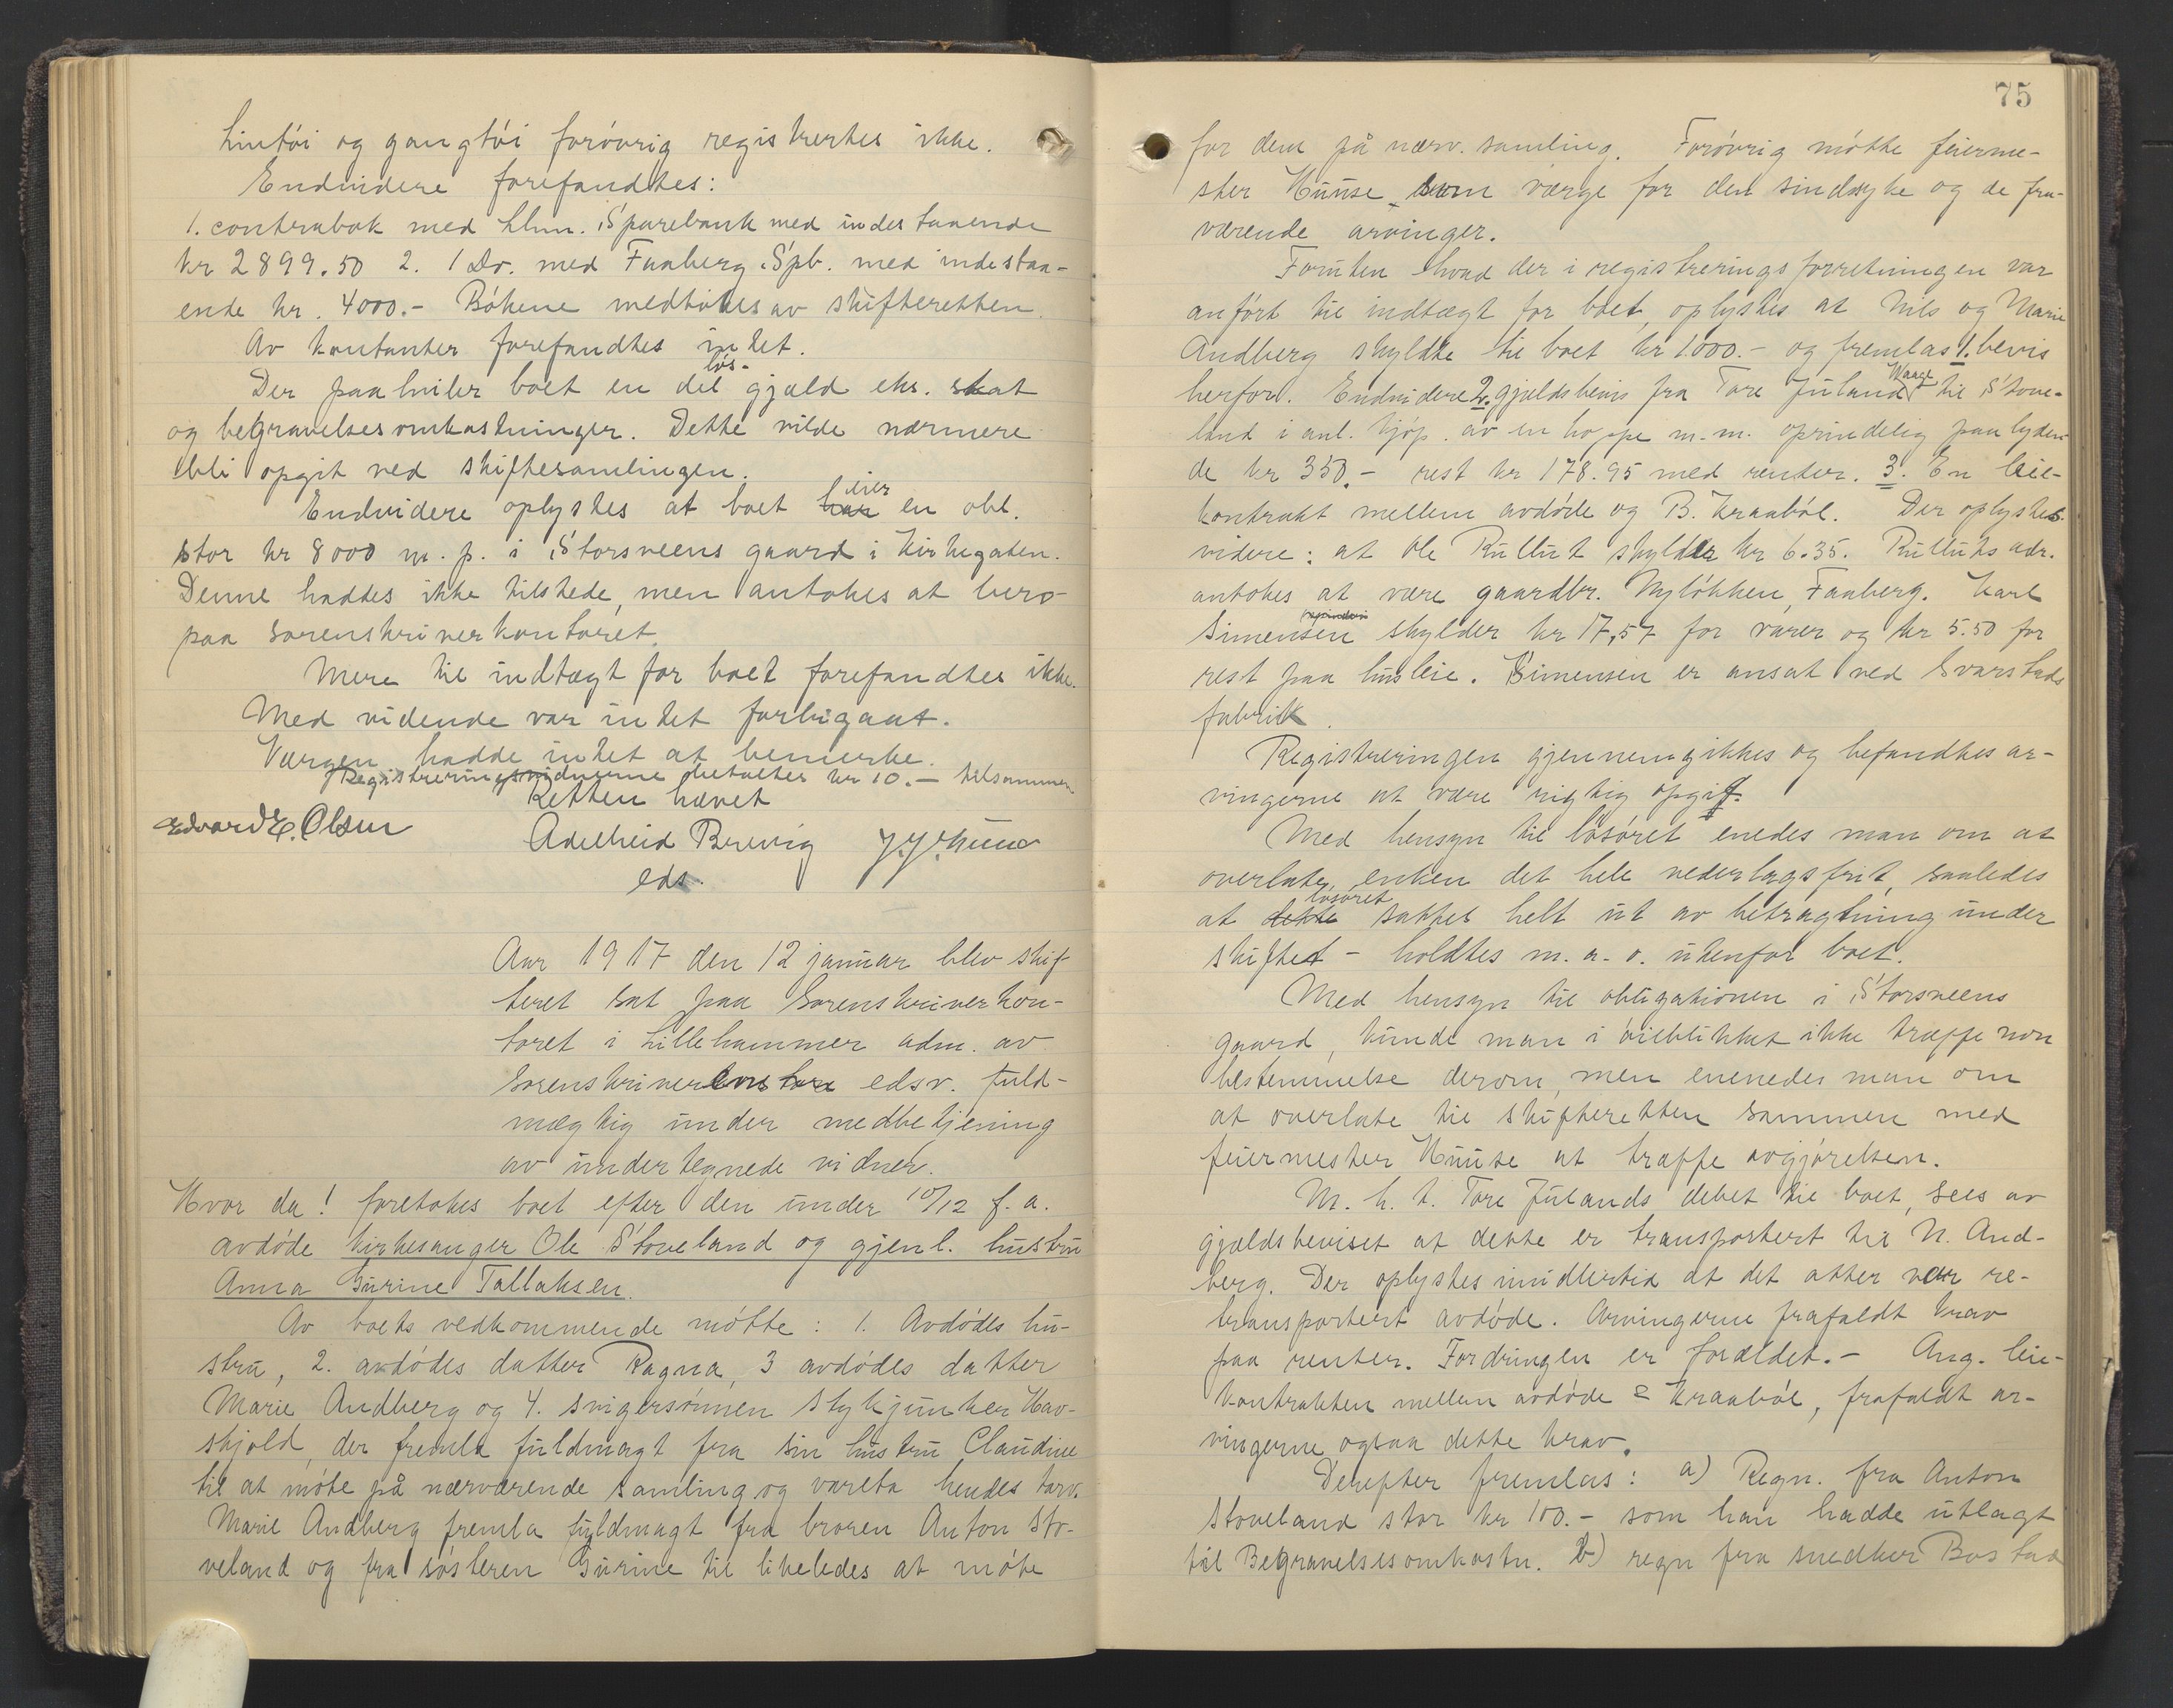 Lintöi og gangtöi forövrig registrertes ikke.
Endvidere forefandtes:
1. contrabok med Lhm. Sparebank med indestaaende
kr 2899.50 2. 1 Do. med Faaberg Spb. med indestaa-
ende kr. 4000.- Bökene medtokes av skifteretten.
Av kontanter forefandtes intet.
Der paahviler boet en del lös- gjæld eks. skat
og begravelsesomkostninger. Dette vilde nærmere
bli opgit ved skiftesamlingen.
Endvidere oplystes at boet har eier en obl.
stor kr 8000 m. p. i Storsveens gaard i Kirkegaten.
Denne haddes ikke tilstede, men antokes at bero
paa sorenskriverkontoret.
Mere til indtægt for boet forefandtes ikke.
Med vidende var intet forbigaat.
Værgen hadde intet at bemerke.
Registreringsvidnerne betaltes kr 10.- tilsammen
Retten hævet
Edvard E. Olsen Adelheid Brevig J. J. Kuuse
eds.
Aar 1917 den 12 januar blev skif-
teret sat paa Sorenskriverkon-
toret i Lillehammer adm. av
Sorenskriverens edsv. fuld-
mægtig under medbetjening
av undertegnede vidner.
Hvor da! foretokes boet efter den under 10/12 f. a.
avdöde kirkesanger Ole Stoveland og gjenl. hustru
Anna Gurine Tallaksen.
Av boets vedkommende mötte: 1. Avdödes hu-
stru, 2. avdödes datter Ragna, 3 avdödes datter
Marie Andberg og 4. svigersönnen stykjunker Hav-
skjold, der fremla fuldmagt fra sin hustru Claudine
til at möte på nærværende samling og vareta hendes tarv.
Marie Andberg fremla fuldmagt fra broren Anton Sto-
veland og fra sösteren Gurine til likeledes at möte
75
for dem på nærv. samling. Forövrig mötte feierme-
ster Kuuse som værge for den sindsyke og de fra-
værende arvinger.
Foruten hvad der i registreringsforretningen var
anfört til indtægt for boet, oplystes at Nils og Marie
Andberg skyldte til boet kr 1000.- og fremlas 1. bevis
herfor. Endvidere 2. gjældsbevis fra Tore Juland Waage til Stove-
land i anl. kjöp. av en hoppe m.m. oprindelig paalyden-
de kr 350.- rest kr 178.95 med renter. 3. En leie-
kontrakt mellem avdöde og B. Kraaböl. Der oplystes
videre: at Ole Rullut skylder kr 6.35. Rulluts adr.
antokes at være gaardbr. Nylökken, Faaberg. Karl
Simensen skylder kr 17,57 for varer og kr 5.50 for
rest paa husleie. Simensen er ansat ved Svarstads
fabrik.
Registreringen gjennemgikkes og befandtes ar-
vingerne at være rigtig opgit.
Med hensyn til lösöret enedes man om at
overlate enken det hele vederlagsfrit, saaledes
at dette lösöret sattes helt ut av betragtning under
skiftet - holdtes m. a. o. utenfor boet.
Med hensyn til obligationen i Storsveens
gaard, kunde man i öieblikket ikke træffe non
bestemmelse derom, men enenedes man om
at overlate til skifteretten sammen med
feiermester Kuuse at træffe avgjörelsen.
M. h. t. Tore Julands debet til boet, sees av
gjældsbeviset at dette er transportert til N. And-
berg. Der oplystes imidlertid at det atter var re-
transportert avdöde. Arvingerne frafaldt krav
paa renter. Fordringen er forældet.- Ang. leie-
kontrakten mellem avdöde = Kraaböl, frafaldt ar-
vingerne ogsaa dette krav.
Derefter fremlas: a) Regn. fra Anton
Stoveland stor kr 100.- som han hadde utlagt
til Begravelsesomkostn. b) regn fra snedker Bostad